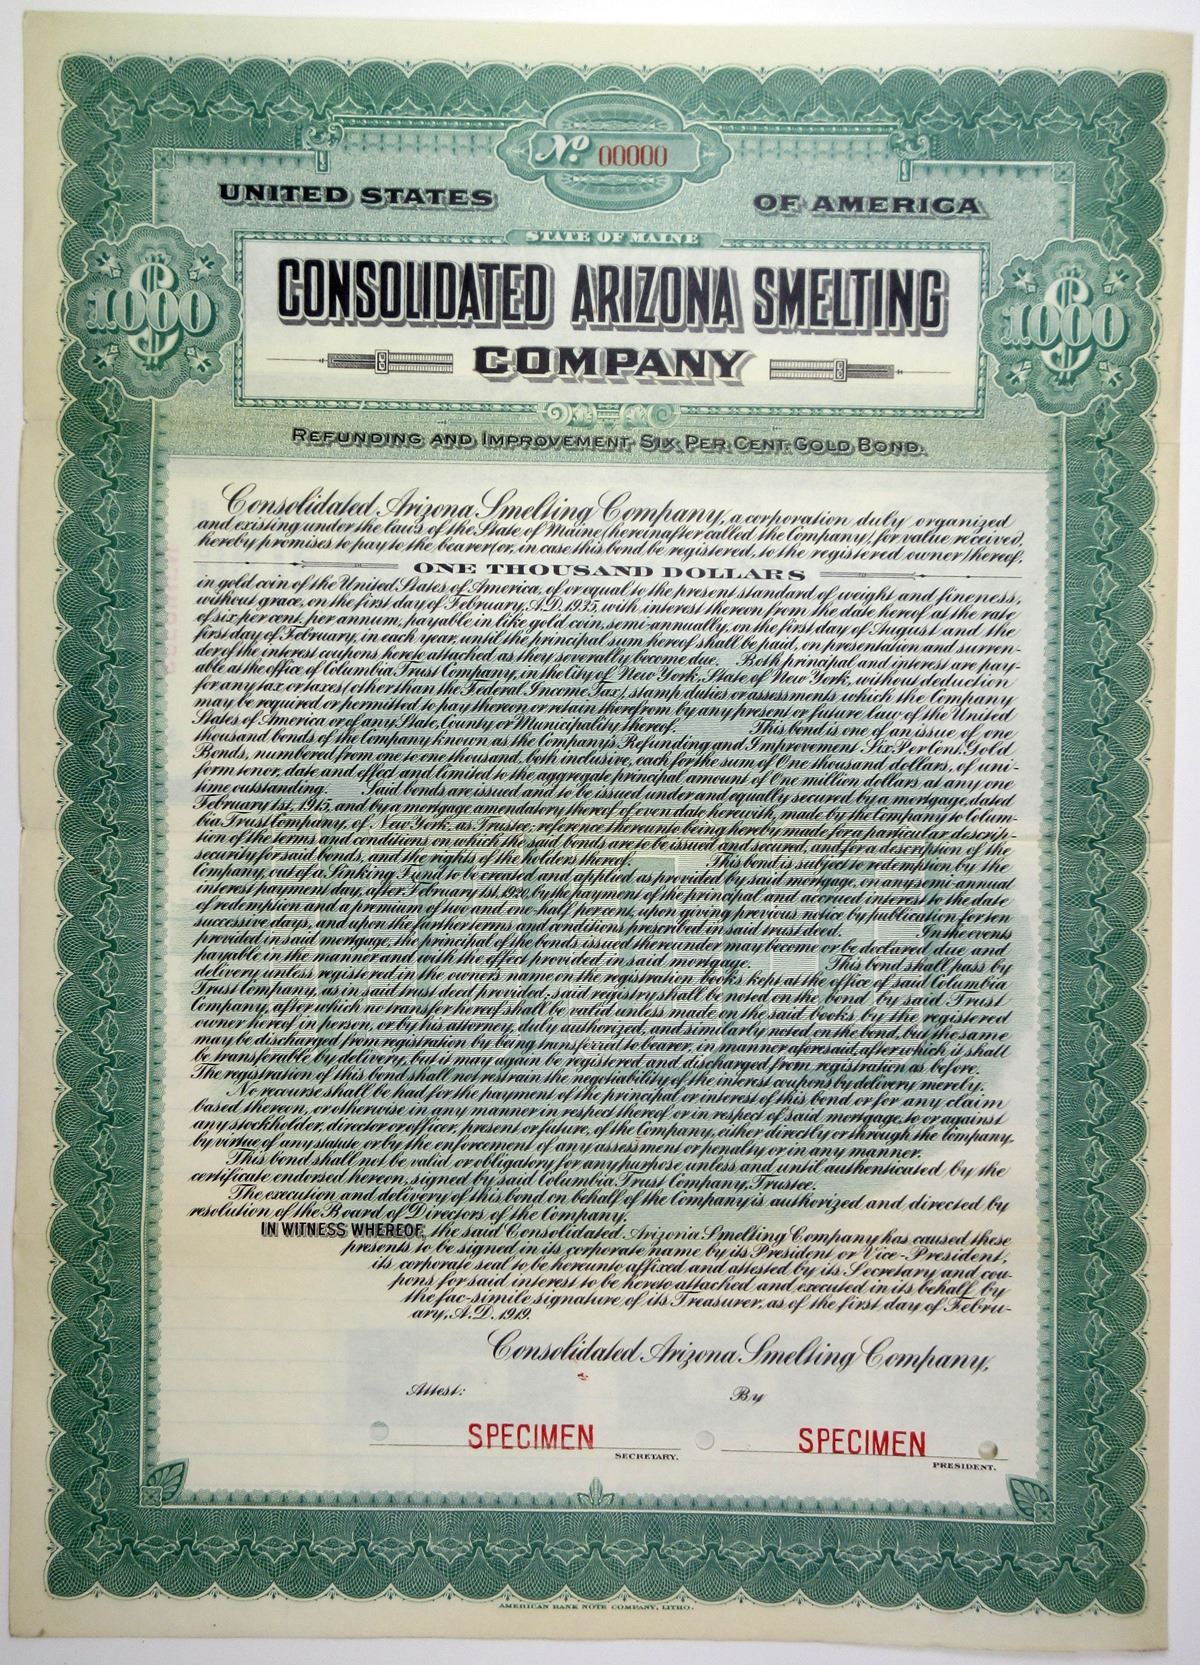 No. 00000
UNITED STATES OF AMERICA
STATE OF MAINE
$1000 $1000
CONSOLIDATED ARIZONA SMELTING
COMPANY
REFUNDING AND IMPROVEMENT SIX PER CENT. GOLD BOND.
Consolidated Arizona Smelting Company, a corporation duly organized
and existing under the laws of the State of Maine (hereinafter called the Company), for value received,
hereby promises to pay to the bearer (or, in case this bond be registered, to the registered owner) hereof,
ONE THOUSAND DOLLARS
in gold coin of the United States of America, of or equal to the present standard of weight and fineness,
without grace, on the first day of February, A.D. 1935, with interest thereon from the date hereof at the rate
of six per cent. per annum, payable in like gold coin, semi-annually, on the first day of August and the
first day of February, in each year, until the principal sum hereof shall be paid, on presentation and surren-
der of the interest coupons hereto attached as they severally become due. Both principal and interest are pay-
able at the office of Columbia Trust Company, in the City of New York, State of New York, without deduction
for any tax or taxes (other than the Federal Income Tax), stamp duties or assessments which the Company
may be required or permitted to pay thereon or retain therefrom by any present or future law of the United
States of America or of any State, County or Municipality thereof. This bond is one of an issue of one
thousand bonds of the Company known as the Company's Refunding and Improvement Six Per Cent. Gold
Bonds, numbered from one to one thousand, both inclusive, each for the sum of One thousand dollars, of uni-
form tenor, date and effect and limited to the aggregate principal amount of One million dollars at any one
time outstanding. Said bonds are issued and to be issued under and equally secured by a mortgage, dated
February 1st, 1915, and by a mortgage amendatory thereof of even date herewith, made by the Company to Colum-
bia Trust Company, of New York, as Trustee, reference thereunto being hereby made for a particular descrip-
tion of the terms and conditions on which the said bonds are to be issued and secured, and for a description of the
security for said bonds, and the rights of the holders thereof. This bond is subject to redemption by the
Company, out of a Sinking Fund to be created and applied as provided by said mortgage, on any semi-annual
interest payment day, after February 1st, 1920, by the payment of the principal and accrued interest to the date
of redemption and a premium of two and one-half per cent, upon giving previous notice by publication for ten
successive days, and upon the further terms and conditions prescribed in said trust deed. In the events
provided in said mortgage, the principal of the bonds issued thereunder may become or be declared due and
payable in the manner and with the effect provided in said mortgage. This bond shall pass by
delivery unless registered in the owner's name on the registration books kept at the office of said Columbia
Trust Company, as in said trust deed provided, said registry shall be noted on the bond by said Trust
Company, after which no transfer hereof shall be valid unless made on the said books by the registered
owner hereof in person, or by his attorney, duly authorized, and similarly noted on the bond, but the same
may be discharged from registration by being transferred to bearer, in manner aforesaid, after which it shall
be transferable by delivery, but it may again be registered and discharged from registration as before.
The registration of this bond shall not restrain the negotiability of the interest coupons by delivery merely.
No recourse shall be had for the payment of the principal or interest of this bond or for any claim
based thereon, or otherwise in any manner in respect thereof or in respect of said mortgage, to or against
any stockholder, director or officer, present or future, of the Company, either directly or through the Company,
by virtue of any statute or by the enforcement of any assessment or penalty or in any manner.
This bond shall not be valid or obligatory for any purpose unless and until authenticated by the
certificate endorsed hereon, signed by said Columbia Trust Company, Trustee.
The execution and delivery of this bond on behalf of the Company is authorized and directed by
resolution of the Board of Directors of the Company.
IN WITNESS WHEREOF, the said Consolidated Arizona Smelting Company has caused these
presents to be signed in its corporate name by its President or Vice-President,
its corporate seal to be hereunto affixed and attested by its Secretary and cou-
pons for said interest to be hereto attached and executed in its behalf by
the fac-simile signature of its Treasurer, as of the first day of Febru-
ary, A.D. 1919.
Consolidated Arizona Smelting Company,
Attest: By
SPECIMEN SPECIMEN
SECRETARY. PRESIDENT.
AMERICAN BANK NOTE COMPANY, LITHO.